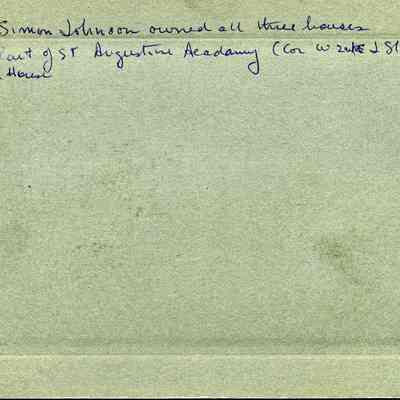 Simon Johnson owned all three houses
East of St Augustine Acadamy (Cor W
House